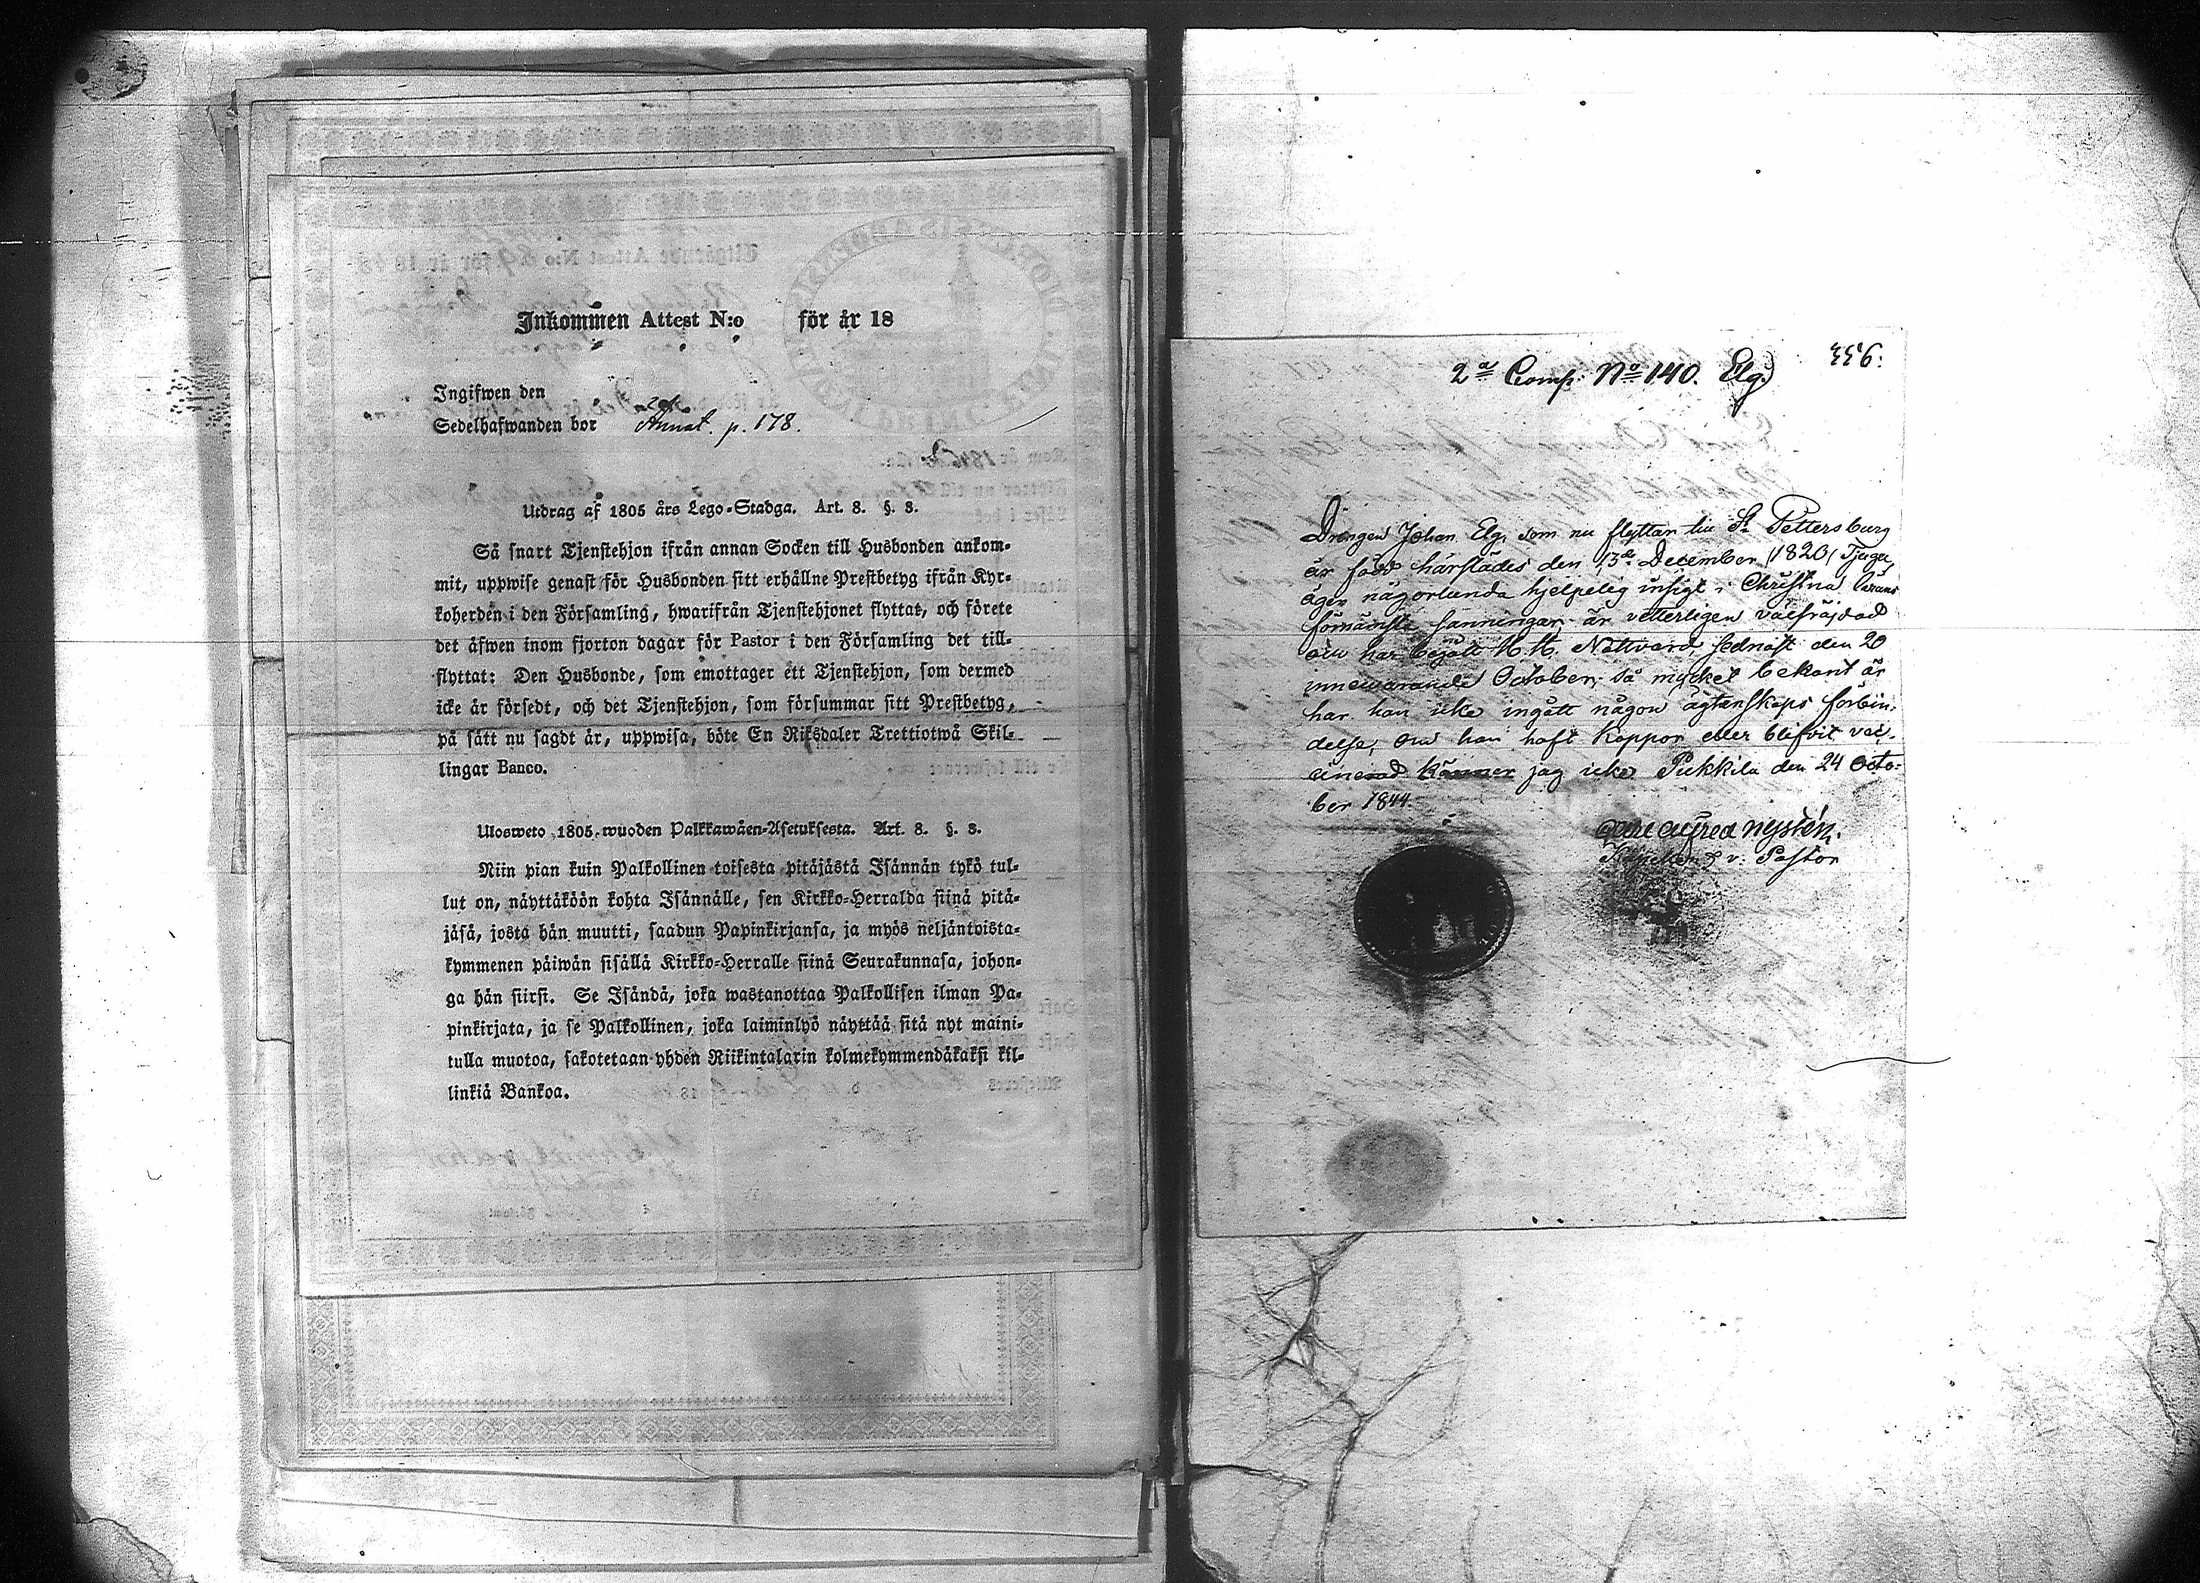 Inkommen Attest N:o för år 18
Ingifwen den
Sedelhafwanden bor Annat. p. 178.
Utdrag af 1805 års Lego-Stadga. Art. 8. §. 3.
Så snart Tjenstehjon ifrån annan Socken till Husbonden ankom-
mit, uppwise genast för Husbonden sitt erhållne Prestbetyg ifrån Kyr-
koherden i den Församling, hwarifrån Tjenstehjonet flyttat, och förete
det äfwen inom fjorton dagar för Pastor i den Församling det till-
flyttat: Den Husbonde, som emottager ett Tjenstehjon, som dermed
icke är försedt, och det Tjenstehjon, som försummar sitt Prestbetyg,
på sätt nu sagdt är, uppwisa, böte En Riksdaler Trettiotwå Skil-
lingar Banco.
Ulosweto 1805 wuoden Palkkawäen-Asetuksesta. Art. 8. §. 3.
Niin pian kuin Palkollinen toisesta pitäjästä Isännän tykö tul-
lut on, näyttäköön kohta Isännälle, sen Kirkko-Herralda siinä pitä-
jäsä, josta hän muutti, saadun Papinkirjansa, ja myös neljäntoista-
kymmenen päiwän sisällä Kirkko-Herralle siinä Seurakunnasa, johon-
ga hän siirsi. Se Isändä, joka wastanottaa Palkollisen ilman Pa-
pinkirjata, ja se Palkollinen, joka laiminlyö näyttää sitä nyt maini-
tulla muotoa, sakotetaan yhden Riikintalarin kolmekymmendäkaksi kil-
linkiä Bankoa.
336.
2a Comp. No 140. Elg.
Drengen Johan Elg, som nu flyttar till St Pettersburg
är född härstädes den 13de December (1820) Tjugu,
äger någorlunda hjelpelig insigt i Christna Lärans
förnämsta sanningar, är vetterligen välfräjdad
och har begått H. H. Nattvard sednast den 20
innewarande October; så mycket bekant är
har han icke ingått någon ägtenskaps förbin-
delse, om han haft koppor eller blifvit vac-
cinerad känner jag icke Pukkila den 24 Octo-
ber 1844.
Carl Alfred Nystén.
v: Pastor